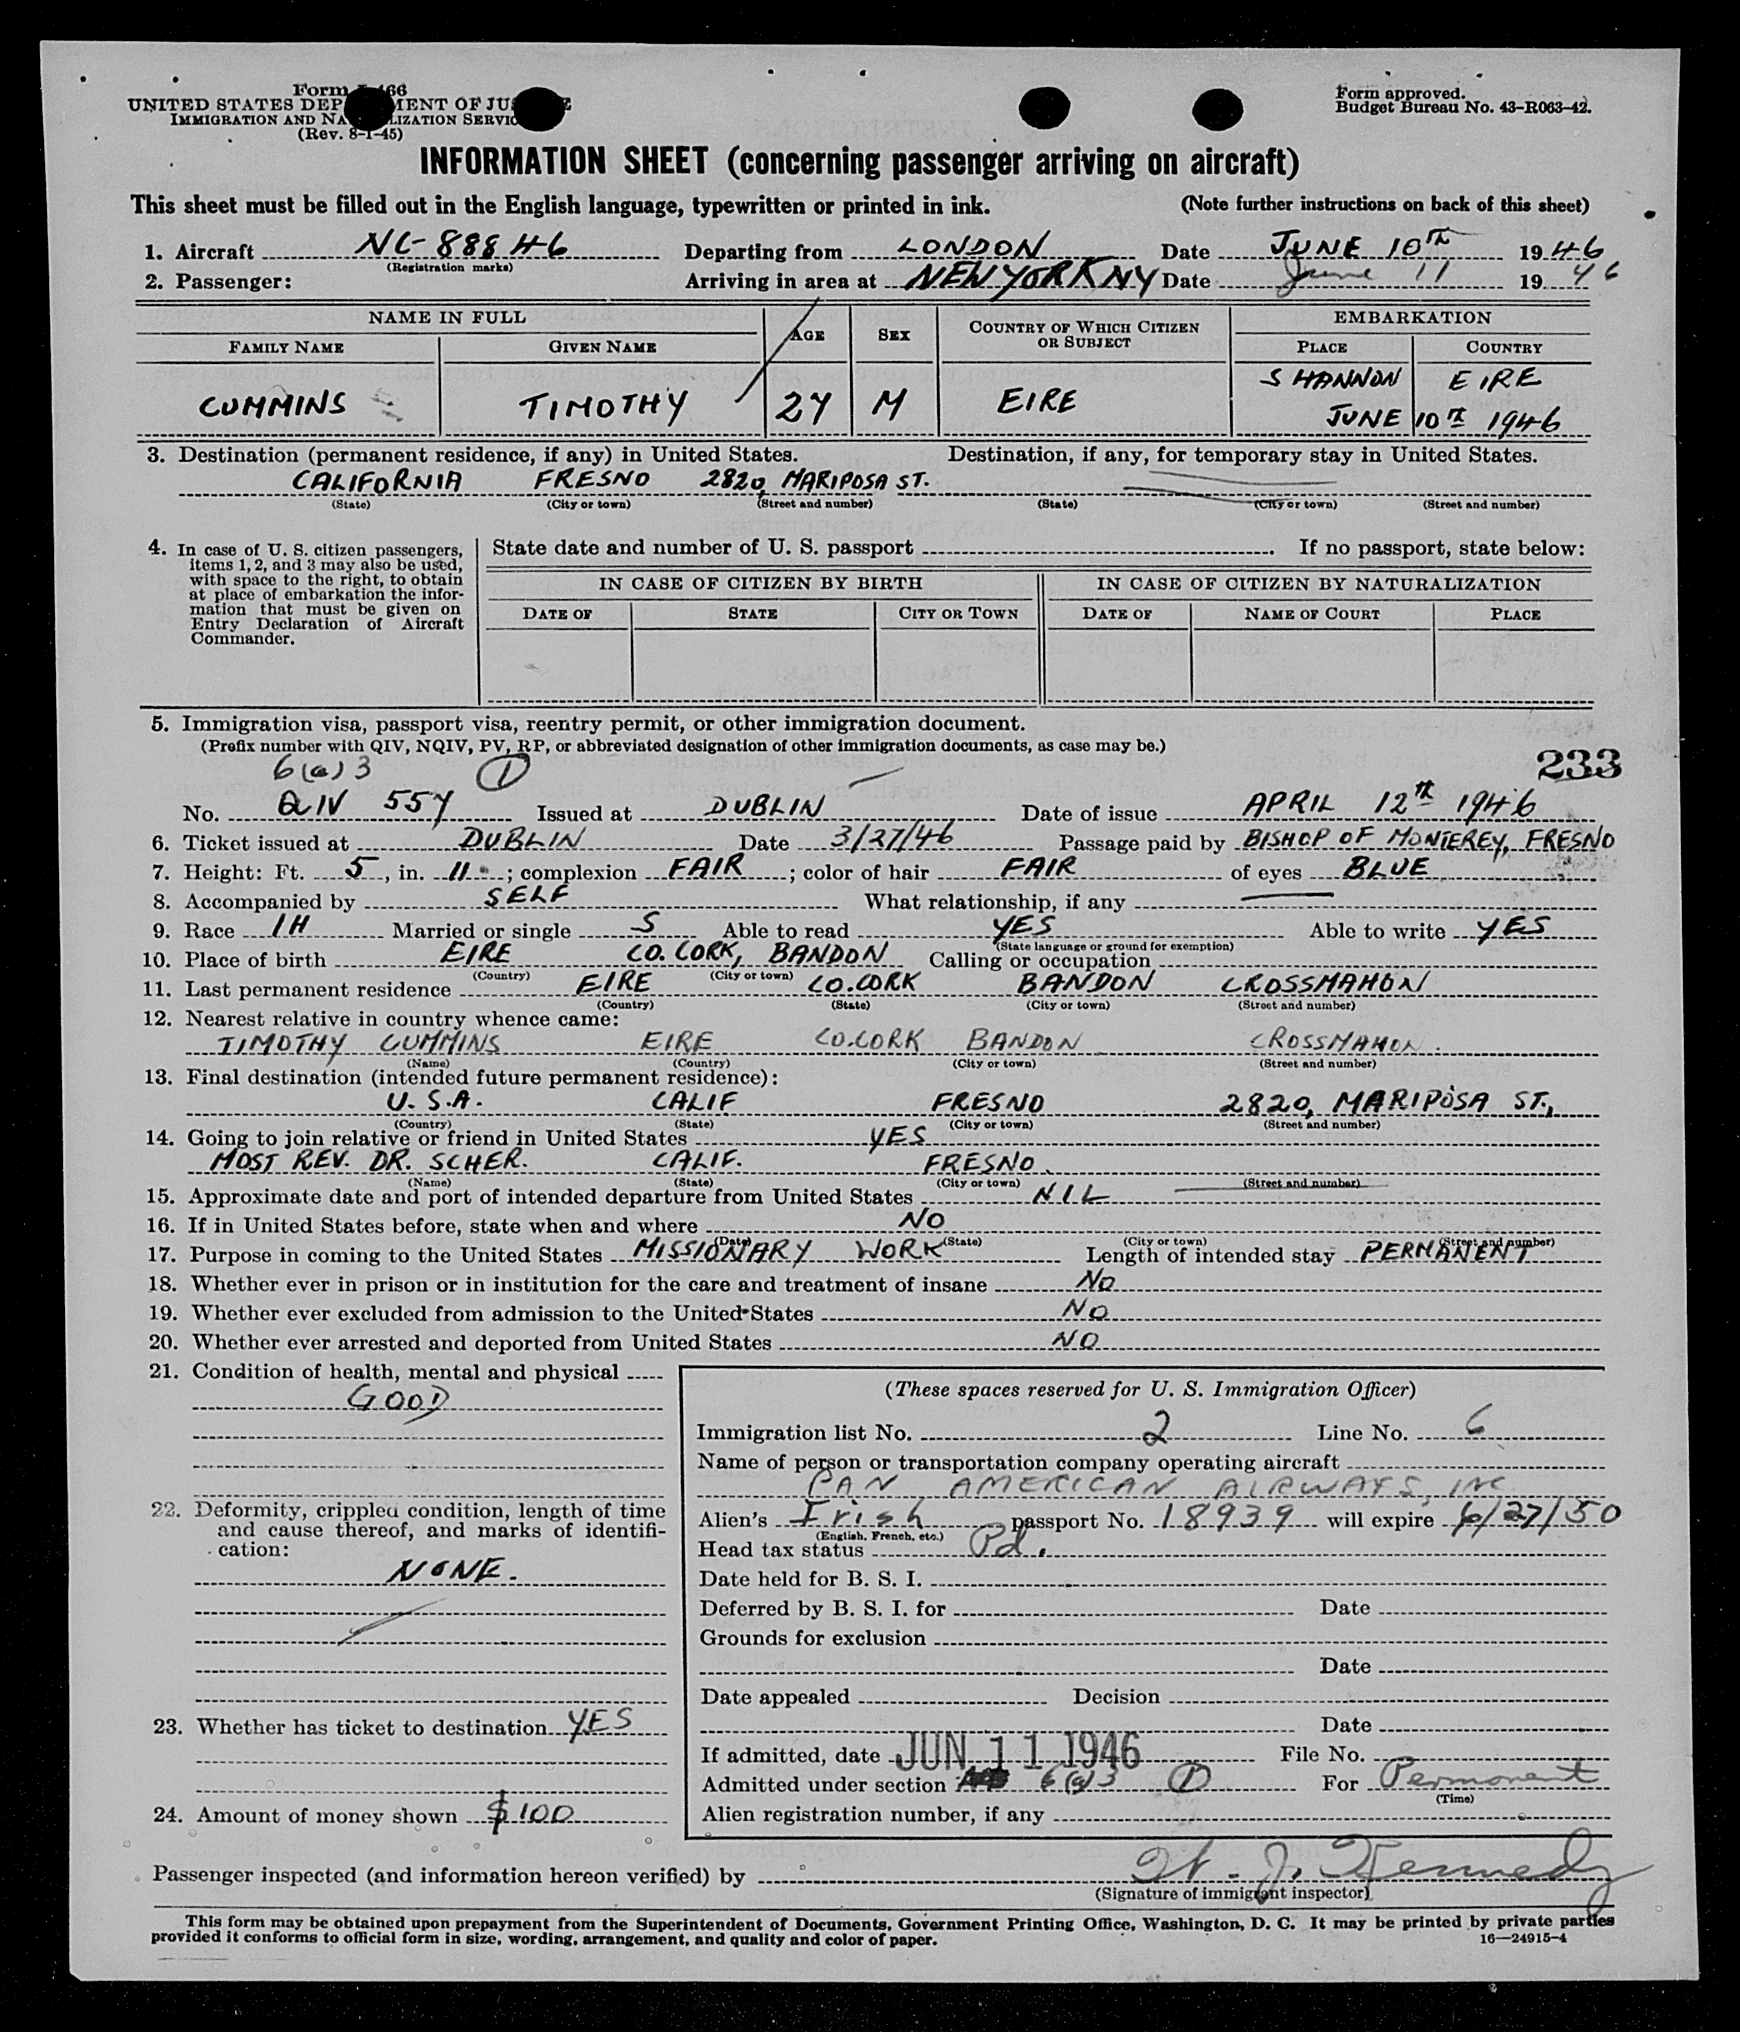 Form I-466
UNITED STATES DEPARTMENT OF JUSTICE
IMMIGRATION AND NATURALIZATION SERVICE
(Rev. 8-1-45)
Form approved.
Budget Bureau No. 43-R063-42.
INFORMATION SHEET (concerning passenger arriving on aircraft)
This sheet must be filled out in the English language, typewritten or printed in ink. (Note further instructions on back of this sheet)
1. Aircraft NC-88846 Departing from LONDON Date JUNE 10TH 1946
(Registration marks)
2. Passenger: Arriving in area at NEW YORK NY Date June 11 1946
NAME IN FULL AGE SEX COUNTRY OF WHICH CITIZEN OR SUBJECT EMBARKATION
FAMILY NAME GIVEN NAME PLACE COUNTRY
SHANNON EIRE
CUMMINS TIMOTHY 24 M EIRE
JUNE 10TH 1946
3. Destination (permanent residence, if any) in United States. Destination, if any, for temporary stay in United States.
CALIFORNIA FRESNO 2820, MARIPOSA ST.
(State) (City or town) (Street and number) (State) (City or town) (Street and number)
4. In case of U. S. citizen passengers,
items 1, 2, and 3 may also be used,
with space to the right, to obtain
at place of embarkation the infor-
mation that must be given on
Entry Declaration of Aircraft
Commander.
State date and number of U. S. passport . If no passport, state below:
IN CASE OF CITIZEN BY BIRTH IN CASE OF CITIZEN BY NATURALIZATION
DATE OF STATE CITY OR TOWN DATE OF NAME OF COURT PLACE
5. Immigration visa, passport visa, reentry permit, or other immigration document.
(Prefix number with QIV, NQIV, PV, RP, or abbreviated designation of other immigration documents, as case may be.)
233
6(a)3 (1)
No. QIV 554 Issued at DUBLIN Date of issue APRIL 12TH 1946
6. Ticket issued at DUBLIN Date 3/27/46 Passage paid by BISHOP OF MONTEREY, FRESNO
7. Height: Ft. 5, in. 11; complexion FAIR; color of hair FAIR of eyes BLUE
8. Accompanied by SELF What relationship, if any
9. Race IH Married or single S Able to read YES Able to write YES
(State language or ground for exemption)
10. Place of birth EIRE CO. CORK, BANDON Calling or occupation
(Country) (City or town)
11. Last permanent residence EIRE CO. CORK BANDON CROSSMAHON
(Country) (State) (City or town) (Street and number)
12. Nearest relative in country whence came:
TIMOTHY CUMMINS EIRE CO. CORK BANDON CROSSMAHON.
(Name) (Country) (City or town) (Street and number)
13. Final destination (intended future permanent residence):
U.S.A. CALIF FRESNO 2820, MARIPOSA ST.,
(Country) (State) (City or town) (Street and number)
14. Going to join relative or friend in United States YES
MOST REV. DR. SCHER. CALIF. FRESNO.
(Name) (State) (City or town) (Street and number)
15. Approximate date and port of intended departure from United States NIL
16. If in United States before, state when and where NO
(Date) (State) (City or town) (Street and number)
17. Purpose in coming to the United States MISSIONARY WORK Length of intended stay PERMANENT
18. Whether ever in prison or in institution for the care and treatment of insane NO
19. Whether ever excluded from admission to the United States NO
20. Whether ever arrested and deported from United States NO
21. Condition of health, mental and physical
GOOD
22. Deformity, crippled condition, length of time
and cause thereof, and marks of identifi-
cation:
NONE.
23. Whether has ticket to destination YES
24. Amount of money shown $100
(These spaces reserved for U. S. Immigration Officer)
Immigration list No. 2 Line No. 6
Name of person or transportation company operating aircraft
PAN AMERICAN AIRWAYS, INC
Alien's Irish passport No. 18939 will expire 6/27/50
(English, French, etc.)
Head tax status Pd.
Date held for B. S. I.
Deferred by B. S. I. for Date
Grounds for exclusion
Date
Date appealed Decision
Date
If admitted, date JUN 11 1946 File No.
Admitted under section 6(a)3 (1) For Permanent
(Time)
Alien registration number, if any
Passenger inspected (and information hereon verified) by W. J. Kennedy
(Signature of immigrant inspector)
This form may be obtained upon prepayment from the Superintendent of Documents, Government Printing Office, Washington, D. C. It may be printed by private parties
provided it conforms to official form in size, wording, arrangement, and quality and color of paper. 16—24915-4